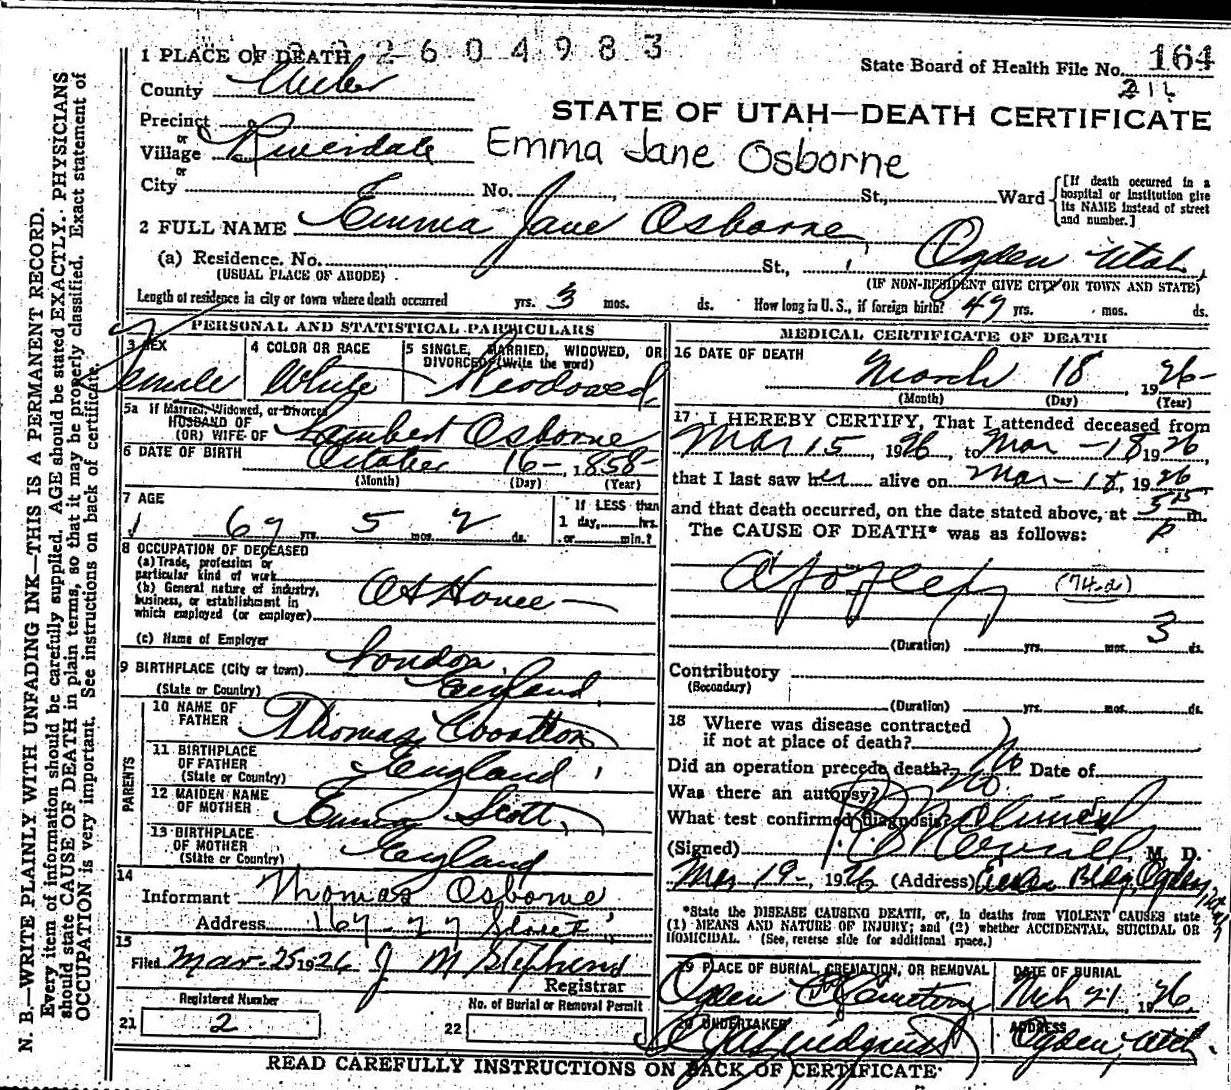 2604983
1 PLACE OF DEATH
State Board of Health File No. 164
211
County Weber
STATE OF UTAH—DEATH CERTIFICATE
Precinct
or
Village Riverdale
Emma Jane Osborne
or
City No. St., Ward
[If death occurred in a hospital or institution give its NAME instead of street and number.]
2 FULL NAME Emma Jane Osborne
(a) Residence. No. St., Ogden Utah
(USUAL PLACE OF ABODE)
(IF NON-RESIDENT GIVE CITY OR TOWN AND STATE)
Length of residence in city or town where death occurred yrs. 3 mos. ds. How long in U.S., if foreign birth? 49 yrs. mos. ds.
PERSONAL AND STATISTICAL PARTICULARS
3 SEX
Female
4 COLOR OR RACE
White
5 SINGLE, MARRIED, WIDOWED, OR DIVORCED (Write the word)
Widowed
5a If Married, Widowed, or Divorced
HUSBAND OF
(OR) WIFE OF Lambert Osborne
6 DATE OF BIRTH October 16 - 1858
(Month) (Day) (Year)
7 AGE
67 yrs. 5 mos. 2 ds.
If LESS than
1 day, hrs.
or min.?
8 OCCUPATION OF DECEASED
(a) Trade, profession or
particular kind of work
(b) General nature of industry,
business, or establishment in
which employed (or employer)
At Home
(c) Name of Employer
9 BIRTHPLACE (City or town) London,
(State or Country) England
PARENTS
10 NAME OF
FATHER Thomas Wootton
11 BIRTHPLACE
OF FATHER
(State or Country) England
12 MAIDEN NAME
OF MOTHER Emma Scott
13 BIRTHPLACE
OF MOTHER
(State or Country) England
14
Informant Thomas Osborne
Address 167 - 27 Street
15
Filed Mar. 25 1926 J M Stephens
Registrar
Registered Number
21 2
No. of Burial or Removal Permit
22
MEDICAL CERTIFICATE OF DEATH
16 DATE OF DEATH
March 18, 1926
(Month) (Day) (Year)
17 I HEREBY CERTIFY, That I attended deceased from
Mar 15, 1926, to Mar - 18 1926,
that I last saw her alive on Mar - 18, 1926
and that death occurred, on the date stated above, at 5 15 P m.
The CAUSE OF DEATH* was as follows:
Apoplexy (74-a)
3
(Duration) yrs. mos. ds.
Contributory
(Secondary)
(Duration) yrs. mos. ds.
18 Where was disease contracted
if not at place of death?
Did an operation precede death? No Date of
Was there an autopsy? no
What test confirmed diagnosis? Clinical
(Signed) M. D.
Mar 19 -, 1926 (Address) Bldg, Ogden
*State the DISEASE CAUSING DEATH, or, in deaths from VIOLENT CAUSES state
(1) MEANS AND NATURE OF INJURY; and (2) whether ACCIDENTAL, SUICIDAL OR
HOMICIDAL. (See, reverse side for additional space.)
19 PLACE OF BURIAL, CREMATION, OR REMOVAL
Ogden Cemetery
DATE OF BURIAL
Mch 21, 1926
20 UNDERTAKER
Lindquist
ADDRESS
Ogden, Utah.
READ CAREFULLY INSTRUCTIONS ON BACK OF CERTIFICATE
N. B.—WRITE PLAINLY WITH UNFADING INK—THIS IS A PERMANENT RECORD.
Every item of information should be carefully supplied. AGE should be stated EXACTLY. PHYSICIANS
should state CAUSE OF DEATH in plain terms, so that it may be properly classified. Exact statement of
OCCUPATION is very important. See instructions on back of certificate.